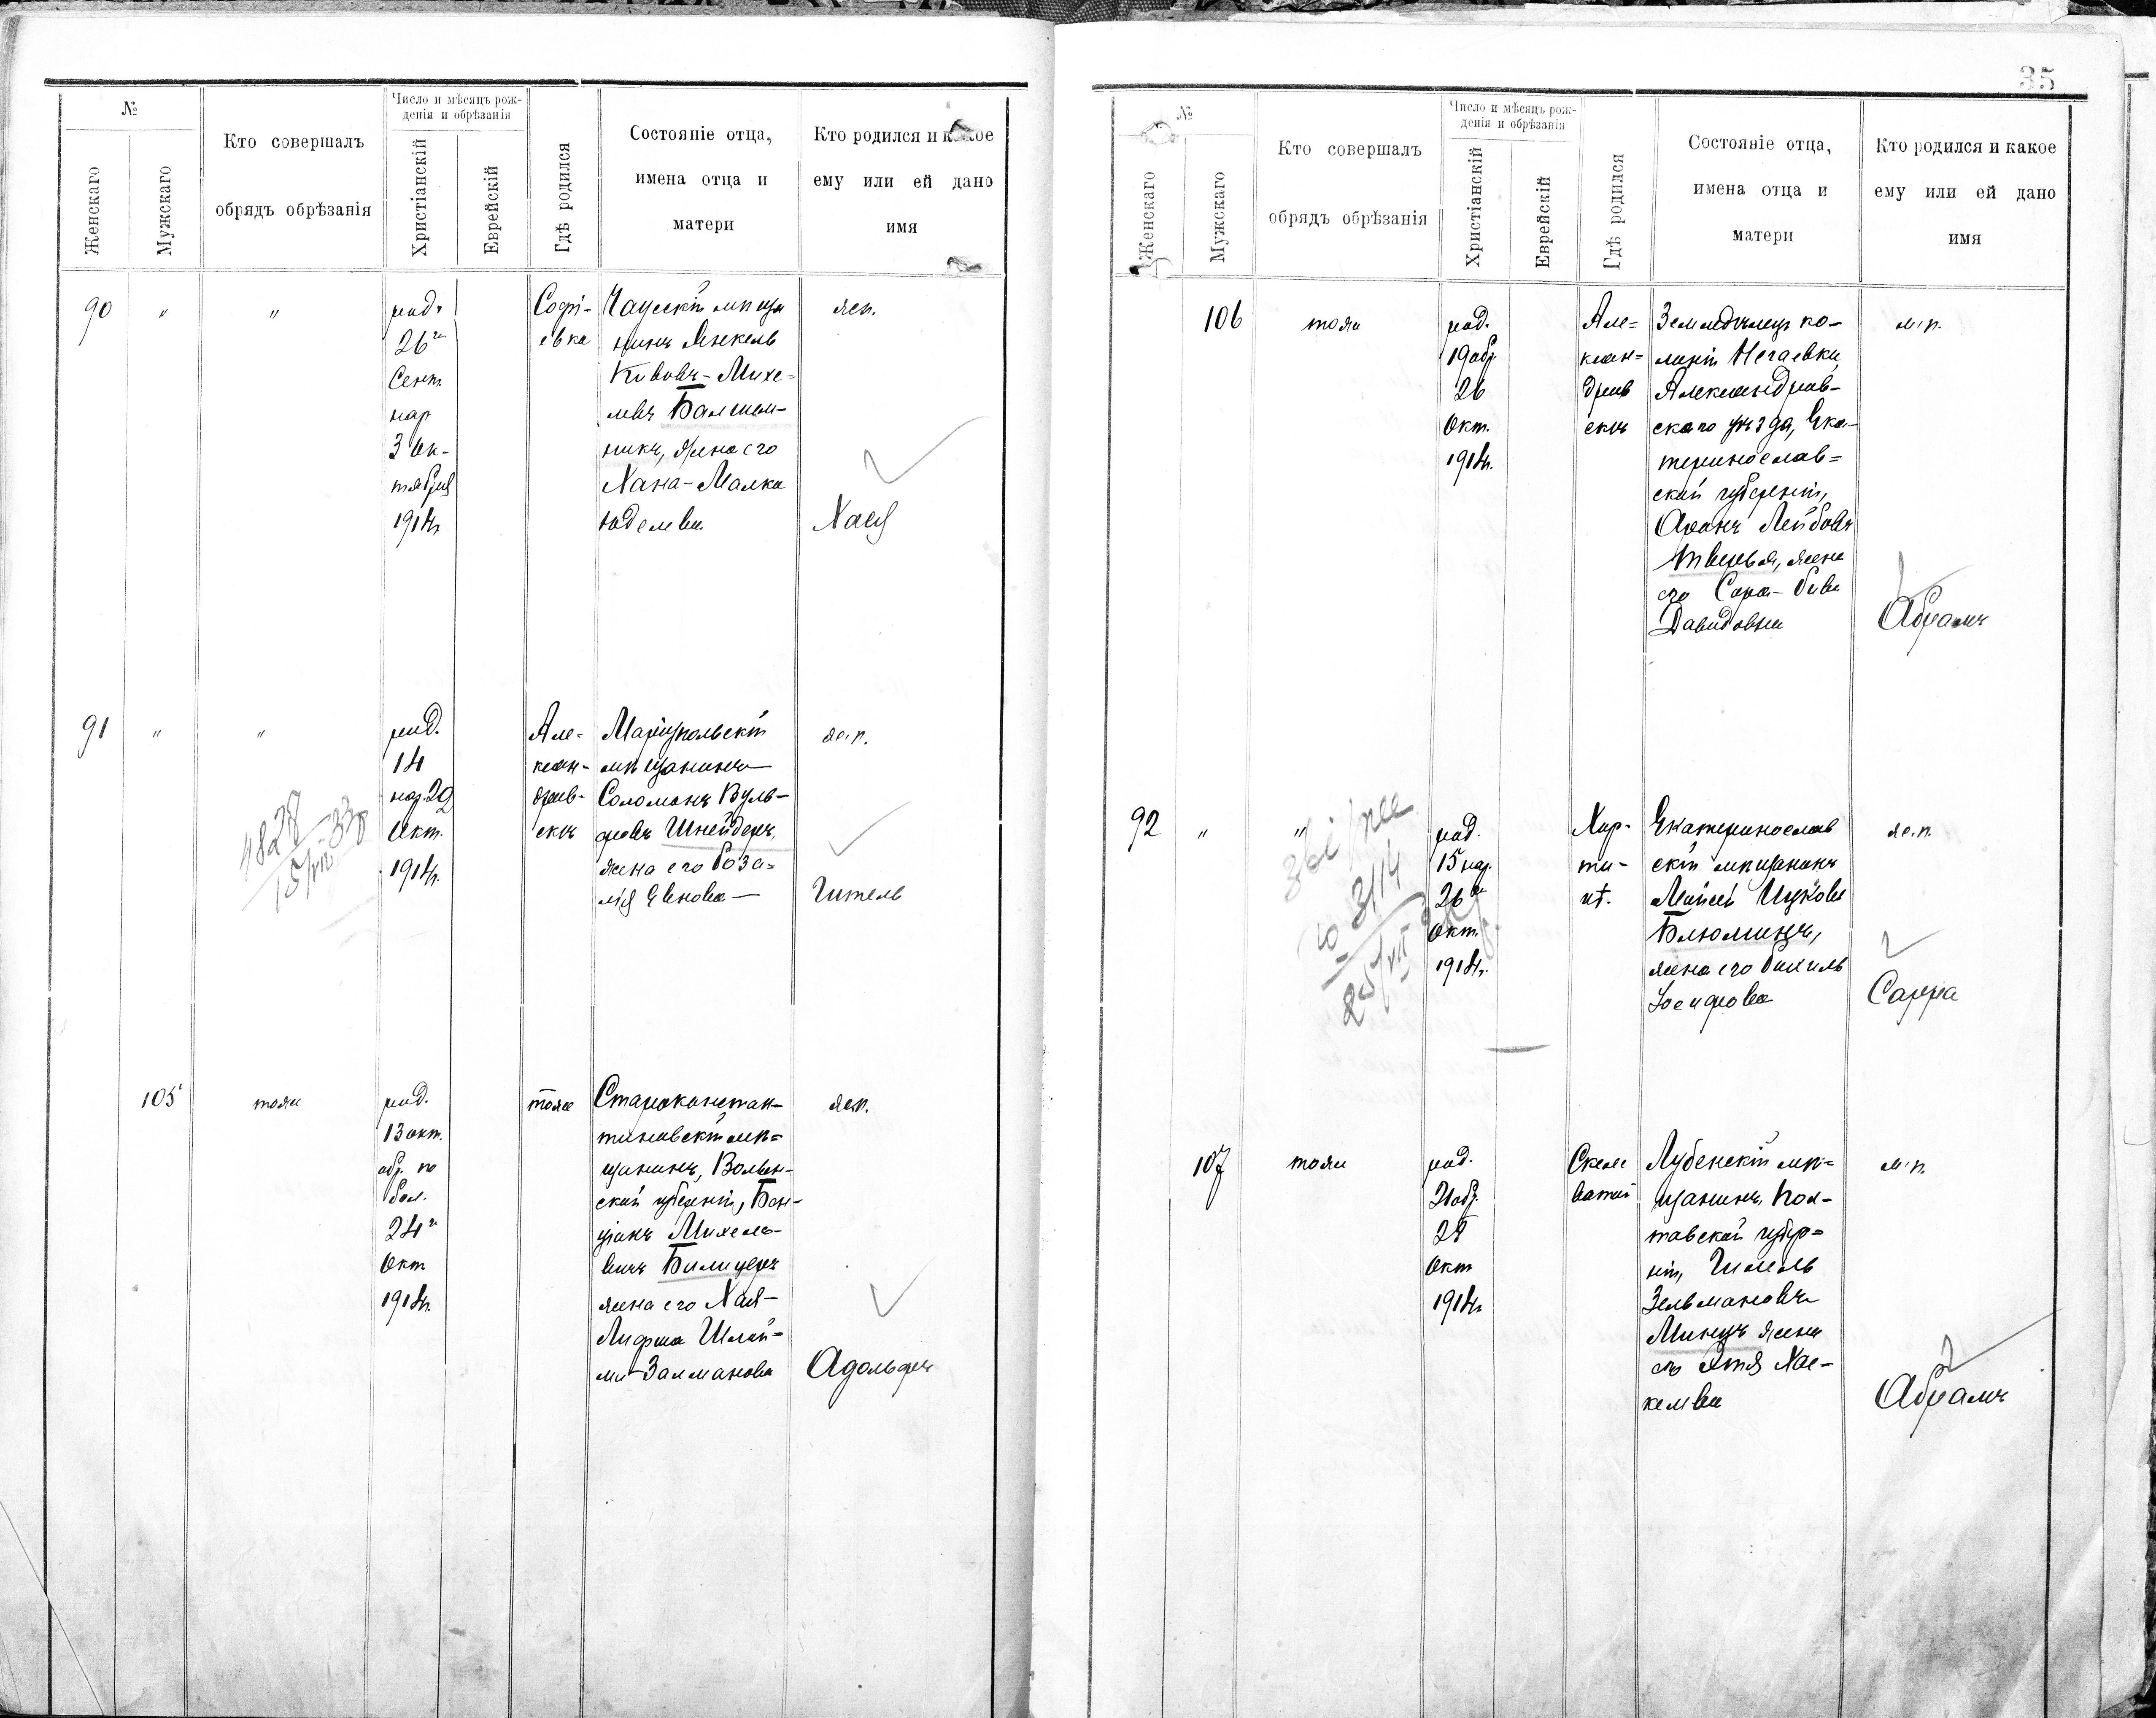 №
Женскаго
Мужскаго
Кто совершалъ
обрядъ обрѣзанія
Число и мѣсяцъ рож-
денія и обрѣзанія
Христіанскій
Еврейскій
Гдѣ родился
Состояніе отца,
имена отца и
матери
Кто родился и какое
ему или ей дано
имя
90 " "
род.
26го
Сент.
нар
3 Ок-
тября
1914г
Софі-
евка
Чаускій мѣща
нинъ Янкель
Кивовъ-Михе-
левъ Балшем-
никъ, жена его
Хана-Малка
Юделева
жен.
Хася
91 " "
род.
14
нар. 29
Окт.
1914г.
4828
15/VII-33
Але-
ксан-
дров-
скъ
Маріупольскій
мѣщанинъ
Соломонъ Вуль-
фовъ Шнейдеръ,
жена его Роза-
лія Евнова
ж.п.
Гитель
105
тоже
род.
13 окт.
обр. по
бол.
24го
Окт
1914г.
тоже
Староконстан-
тиновскій мѣ-
щанинъ, Волын-
ской губерніи, Бен-
ціонъ Михеле-
вичъ Билицеръ
жена его Хая-
Лифша Шлой-
ми-Залманова
Адольфъ
35
№
Женскаго
Мужскаго
Кто совершалъ
обрядъ обрѣзанія
Число и мѣсяцъ рож-
денія и обрѣзанія
Христіанскій
Еврейскій
Гдѣ родился
Состояніе отца,
имена отца и
матери
Кто родился и какое
ему или ей дано
имя
106
тоже
род.
19 обр.
26
Окт.
1914г.
Але-
ксан-
дров
скъ
Земледѣлецъ ко-
лоніи Нечаевки,
Александров-
скаго уѣзда, Ека-
теринослав-
ской губерніи,
Аронъ Лейбовъ
жена
его Сора-Рива
Давидовна
м.п.
Абрамъ
92 " "
род.
15 нар.
26го
Окт.
1914г.
3114
25/VII
Хор-
ти-
ца.
Екатеринослав
скій мѣщанинъ
Мойсей Ицковъ
Блюминъ,
жена его Рахиль
Іосифова
ж.п.
Сарра
107
тоже
род.
21 обр.
28
Окт
1914г
Скеле
ватой
Лубенскій мѣ-
щанинъ, Пол-
тавской губер-
ніи, Гилель
Зельмановъ
Минцъ жена
его Этя Хас-
келева
м.п.
Абрамъ